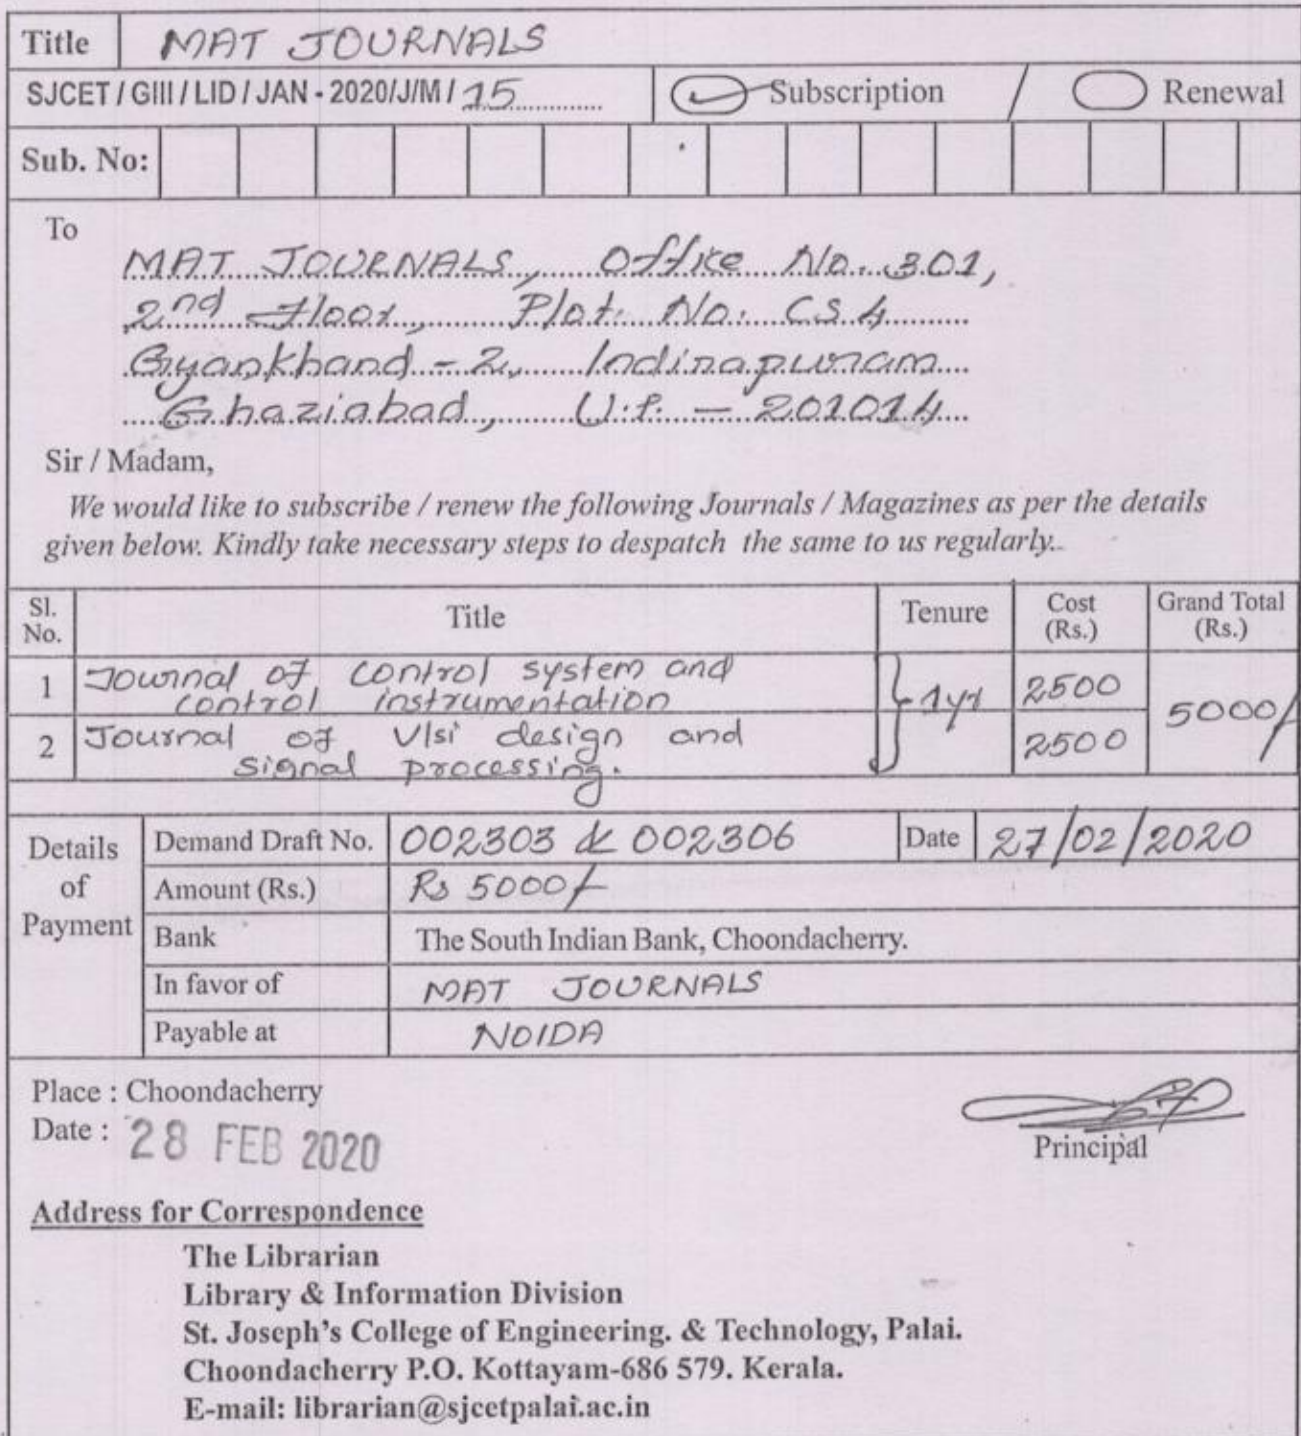 Title MAT JOURNALS
SJCET / GIII / LID / JAN - 2020/J/M / 15 Subscription / Renewal
Sub. No:
To
MAT JOURNALS, Office No. 301,
2nd Floor, Plot. No. CS 4
Gyankhand - 2, Indirapuram
Ghaziabad, U.P. - 201014
Sir / Madam,
We would like to subscribe / renew the following Journals / Magazines as per the details
given below. Kindly take necessary steps to despatch the same to us regularly..
Sl. No. Title Tenure Cost (Rs.) Grand Total (Rs.)
1 Journal of control system and
control instrumentation 1yr 2500 5000/-
2 Journal of Vlsi design and
signal processing. 2500
Details of Payment
Demand Draft No. 002303 & 002306 Date 27/02/2020
Amount (Rs.) Rs 5000/-
Bank The South Indian Bank, Choondacherry.
In favor of MAT JOURNALS
Payable at NOIDA
Place : Choondacherry
Date : 28 FEB 2020
Principal
Address for Correspondence
The Librarian
Library & Information Division
St. Joseph's College of Engineering. & Technology, Palai.
Choondacherry P.O. Kottayam-686 579. Kerala.
E-mail: librarian@sjcetpalai.ac.in